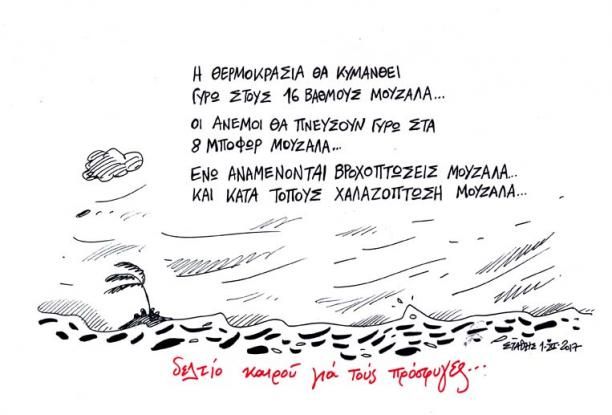 Η ΘΕΡΜΟΚΡΑΣΙΑ ΘΑ ΚΥΜΑΝΘΕΙ
ΓΥΡΩ ΣΤΟΥΣ 16 ΒΑΘΜΟΥΣ ΜΟΥΖΑΛΑ...
ΟΙ ΑΝΕΜΟΙ ΘΑ ΠΝΕΥΣΟΥΝ ΓΥΡΩ ΣΤΑ
8 ΜΠΟΦΩΡ ΜΟΥΖΑΛΑ...
ΕΝΩ ΑΝΑΜΕΝΟΝΤΑΙ ΒΡΟΧΟΠΤΩΣΕΙΣ ΜΟΥΖΑΛΑ...
ΚΑΙ ΚΑΤΑ ΤΟΠΟΥΣ ΧΑΛΑΖΟΠΤΩΣΗ ΜΟΥΖΑΛΑ...
ΣΤΑΘΗΣ 1-XI-2017
δελτίο καιρού γιά τούς πρόσφυγες...